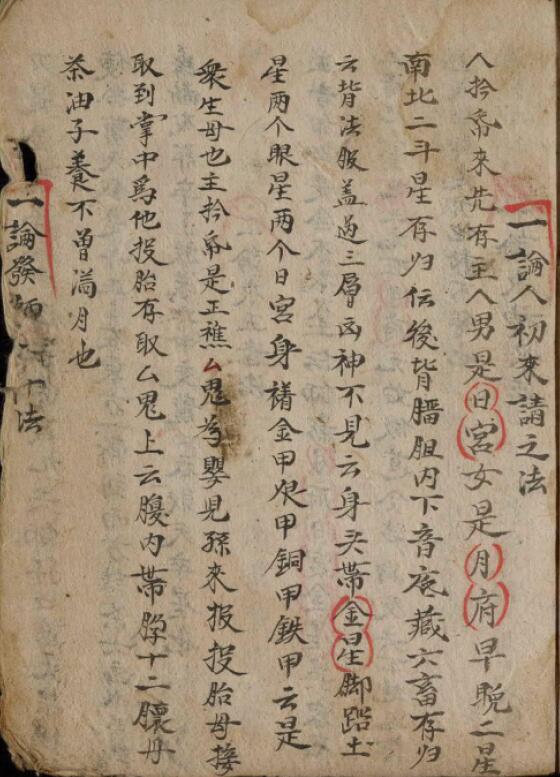 一論人初來請之法
人拾帋來先存主人男是日宮女是月府早晚二星
南北二斗星存归伝後背腊胆内下音庵藏六畜存归
云背法服盖過三層凶神不見云身头帶金星脚踏土
星两个眼星两个日宮身禙金甲艮甲銅甲鉄甲云是
衆生母也主拾帋是正樵厶鬼為嬰児孫來报投胎母接
取到掌中爲他投胎存取厶鬼上云腹内帶 十二 丹
茶油子養不曾满月也
一論發 法